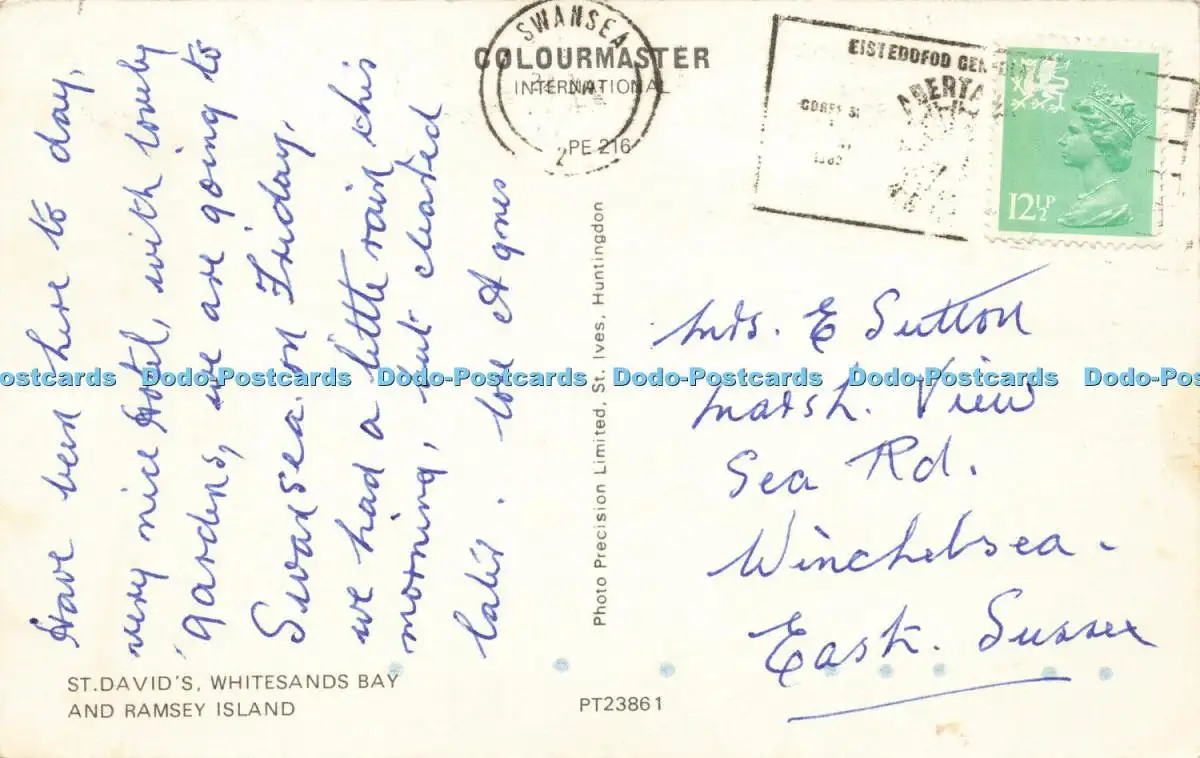 SWANSEA
COLOURMASTER
INTERNATIONAL
PE 216
2
EISTEDDFOD
ABERTA
12½P
Have been here to day,
very nice Hotel, with lovely
gardens, we are going to
Swansea. on Friday.
we had a little rain this
morning, but cleared
later. love Agnes
Photo Precision Limited, St. Ives, Huntingdon
Mrs. E Sutton
Marsh. View
Sea Rd.
Winchelsea.
East. Sussex
ostcards Dodo-Postcards Dodo-Postcards Dodo-Postcards Dodo-Postcards Dodo-Postc
ST.DAVID'S, WHITESANDS BAY
AND RAMSEY ISLAND
PT23861